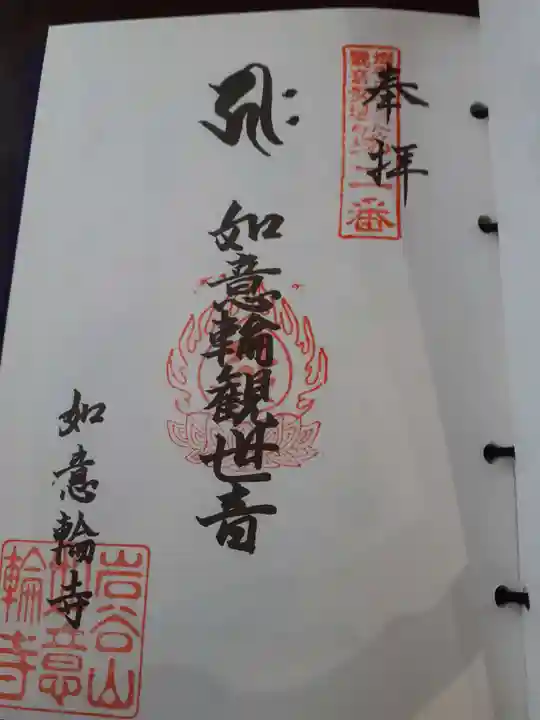 奉拝
如意輪観世音
如意輪寺
岩谷山如意輪寺